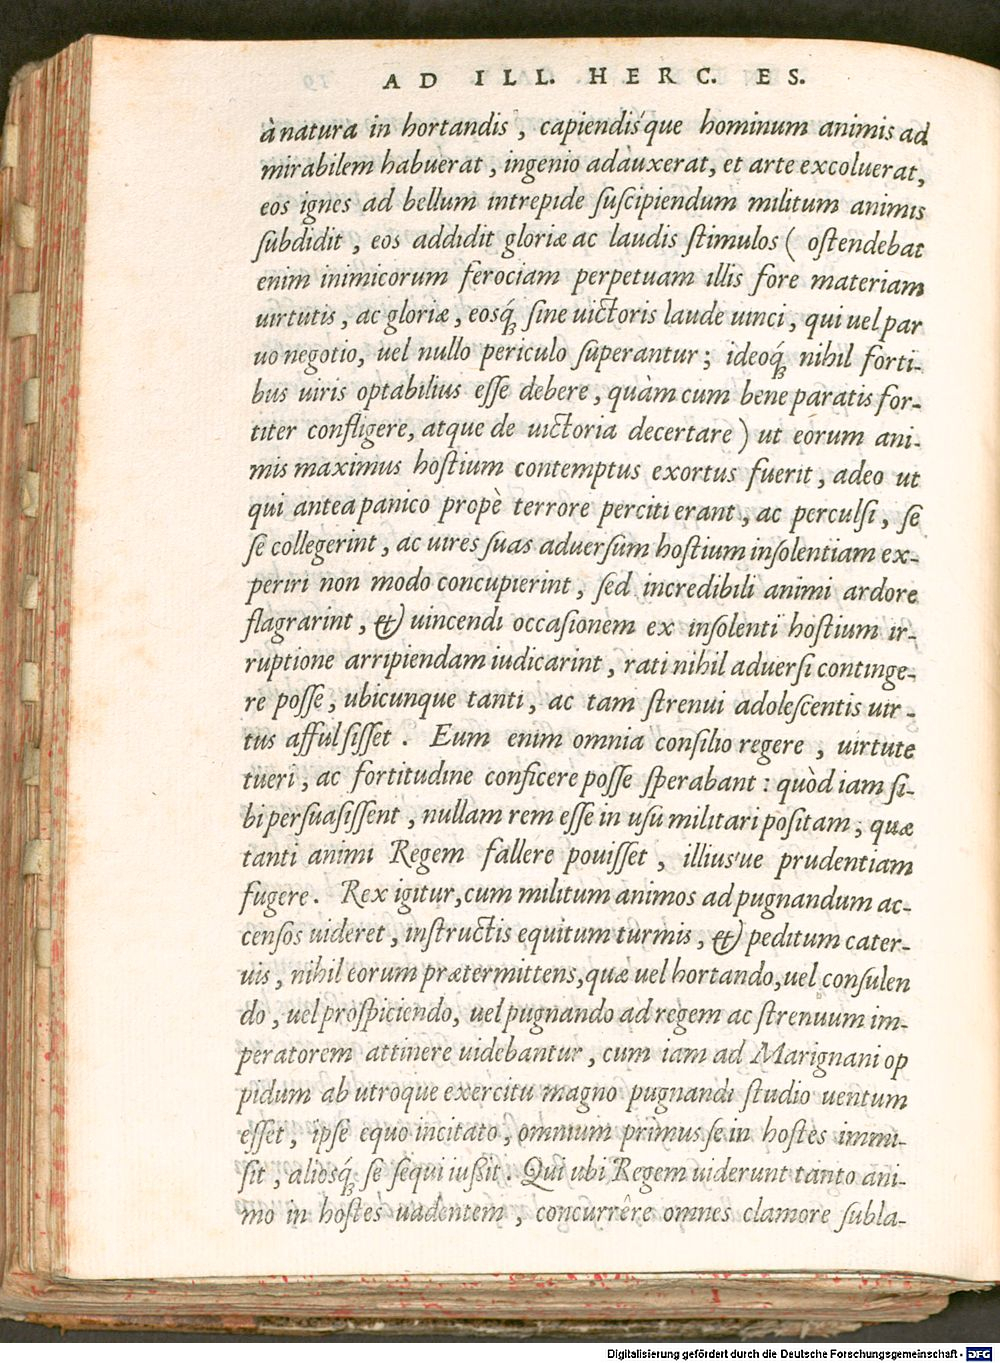 AD ILL. HERC. ES.
à natura in hortandis, capiendis'que hominum animis ad
mirabilem habuerat, ingenio adauxerat, et arte excoluerat,
eos ignes ad bellum intrepide ſuſcipiendum militum animis
ſubdidit, eos addidit gloriæ ac laudis ſtimulos ( oſtendebat
enim inimicorum ferociam perpetuam illis fore materiam
uirtutis, ac gloriæ, eosq́; ſine uictoris laude uinci, qui uel par
uo negotio, uel nullo periculo ſuperantur; ideoq́; nihil forti-
bus uiris optabilius eſſe debere, quàm cum bene paratis for-
titer confligere, atque de uictoria decertare ) ut eorum ani-
mis maximus hoſtium contemptus exortus fuerit, adeo ut
qui antea panico propè terrore perciti erant, ac perculſi, ſe
ſe collegerint, ac uires ſuas aduerſum hoſtium inſolentiam ex-
periri non modo concupierint, ſed incredibili animi ardore
flagrarint, & uincendi occaſionem ex inſolenti hoſtium ir-
ruptione arripiendam iudicarint, rati nihil aduerſi continge-
re poſſe, ubicunque tanti, ac tam ſtrenui adoleſcentis uir-
tus affulſiſſet. Eum enim omnia conſilio regere, uirtute
tueri, ac fortitudine conficere poſſe ſperabant: quòd iam ſi-
bi perſuaſiſſent, nullam rem eſſe in uſu militari poſitam, quæ
tanti animi Regem fallere potuiſſet, illius'ue prudentiam
fugere. Rex igitur, cum militum animos ad pugnandum ac-
cenſos uideret, inſtructis equitum turmis, & peditum cater-
uis, nihil eorum prætermittens, quæ uel hortando, uel conſulen
do, uel proſpiciendo, uel pugnando ad regem ac ſtrenuum im-
peratorem attinere uidebantur, cum iam ad Marignani op
pidum ab utroque exercitu magno pugnandi ſtudio uentum
eſſet, ipſe equo incitato, omnium primus ſe in hoſtes immi-
ſit, aliosq́; ſe ſequi iußit. Qui ubi Regem uiderunt tanto ani-
mo in hoſtes uadentem, concurrêre omnes clamore ſubla-
Digitalisierung gefördert durch die Deutsche Forschungsgemeinschaft - DFG